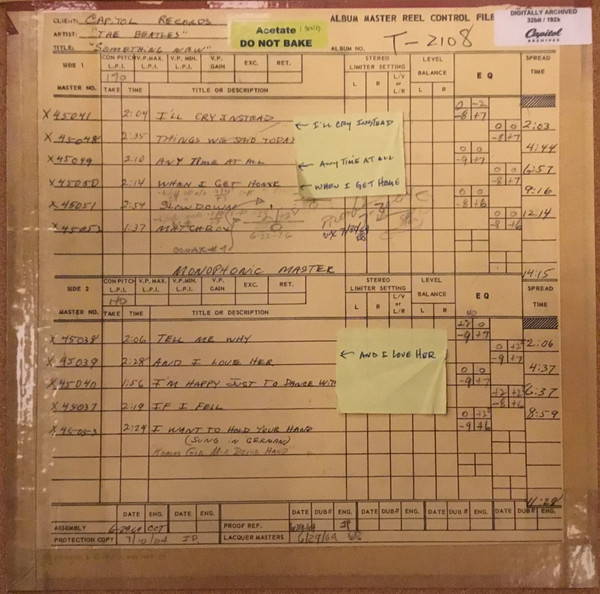 CLIENT: CAPITOL RECORDS
ARTIST: "THE BEATLES"
TITLE: "SOMETHING NEW"
Acetate
DO NOT BAKE
ALBUM MASTER REEL CONTROL FILE
ALBUM NO. T-2108
DIGITALLY ARCHIVED
32bit / 192k
Capitol
ARCHIVES
SIDE 1 CON PITCH L.P.I. V.P. MAX. L.P.I. V.P. MIN. L.P.I. V.P. GAIN EXC. RET. STEREO LIMITER SETTING L R L/V or L/R LEVEL BALANCE L R EQ SPREAD TIME
170
MASTER NO. TAKE TIME TITLE OR DESCRIPTION
X 45041 2:04 I'LL CRY INSTEAD 0 -2 -8 +7 2:03
← I'LL CRY INSTEAD
X 45048 2:35 THINGS WE SAID TODAY 0 0 -8 +7 4:44
X 45049 2:10 ANY TIME AT ALL 0 0 -9 +7 6:57
← ANY TIME AT ALL
X 45050 2:14 WHEN I GET HOME 0 0 -8 +7 9:16
← WHEN I GET HOME
X 45051 2:54 SLOW DOWN 0 0 -8 +6 12:14
X 45052 1:37 MATCHBOX 0 0 -8 +6
MONOPHONIC MASTER 14:15
SIDE 2 CON PITCH L.P.I. V.P. MAX. L.P.I. V.P. MIN. L.P.I. V.P. GAIN EXC. RET. STEREO LIMITER SETTING L R L/V or L/R LEVEL BALANCE L R EQ SPREAD TIME
MASTER NO. TAKE TIME TITLE OR DESCRIPTION
X 45038 2:06 TELL ME WHY +2 0 -9 +6 2:06
X 45039 2:28 AND I LOVE HER 0 +2 -9 +7 4:37
← AND I LOVE HER
X 45040 1:56 I'M HAPPY JUST TO DANCE WITH 0 0 -9 +7 6:37
X 45037 2:19 IF I FELL +2 +2 -8 +6 8:59
2:24 I WANT TO HOLD YOUR HAND 0 +2 -9 +6
(SUNG IN GERMAN)
11:28
DATE ENG. DATE ENG. DATE ENG. DATE DUB# ENG. DATE DUB# ENG. DATE DUB# ENG. DATE DUB# ENG.
ASSEMBLY 6-29-64 CCT PROOF REF. 6/29/64 JP
PROTECTION COPY 7/10/64 JP LACQUER MASTERS 6/29/64